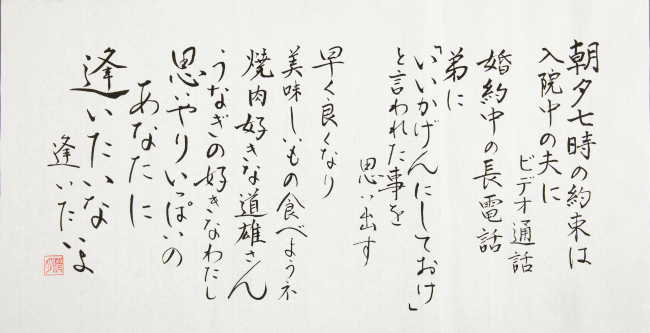 朝夕七時の約束は
入院中の夫に
ビデオ通話
婚約中の長電話
弟に
「いいかげんにしておけ」
と言われた事を
思い出す
早く良くなり
美味しいもの食べようネ
焼肉好きな道雄さん
うなぎの好きなわたし
思いやりいっぱいの
あなたに
逢いたいな
逢いたいよ